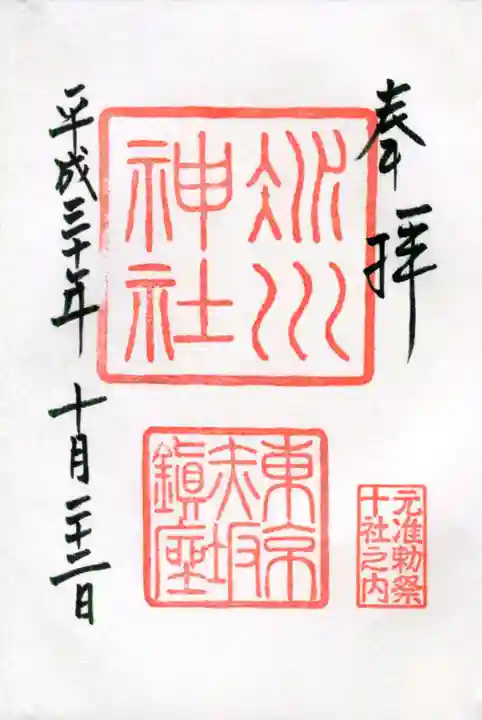 奉拝
氷川
神社
東京
赤坂
鎮座
元准勅祭
十社之内
平成三十年 十月二十二日